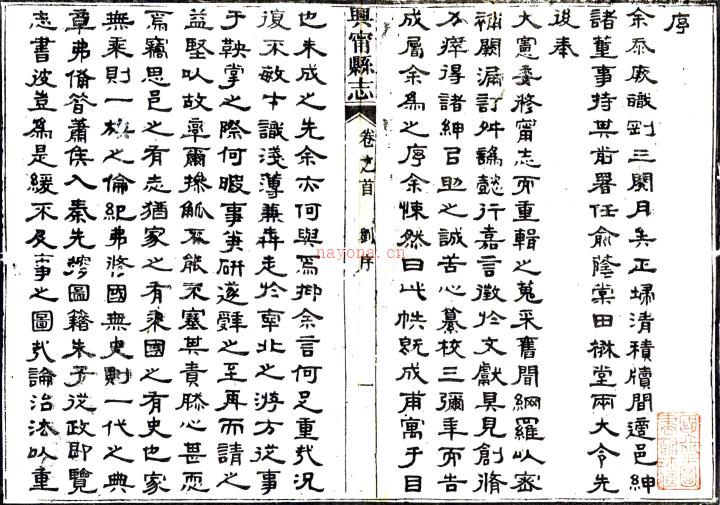 序
余忝廁識到三閱月矣正埽清積牘間適邑紳
諸董事持其前署任俞蔭棠田楙堂兩大令先
後奉
大憲委修甯志而重輯之蒐采舊聞綱羅以密
補闕漏訂舛譌懿行嘉言徵於文獻具見創脩
力瘁得諸紳召助之誠苦心纂校三彌年而告
成屬余為之序余悚然曰此帙既成甫寓于目
興甯縣志
卷之首 劉序 一
也未成之先余亦何與焉抑余言何足重哉況
復不敏才識淺薄兼犇走於寧北之游方從事
于鞅掌之際何暇事筆研遂辭之至再而請之
益堅以故率爾操觚不能不塞其責朕心甚恧
焉竊思邑之有志猶家之有乘國之有史也家
無乘則一族之倫紀弗修國無史則一代之典
章弗備管蕭侯入秦先孴圖籍朱子從政即覽
志書彼豈為是緩不及事之圖哉論治法以重
nayona.cn